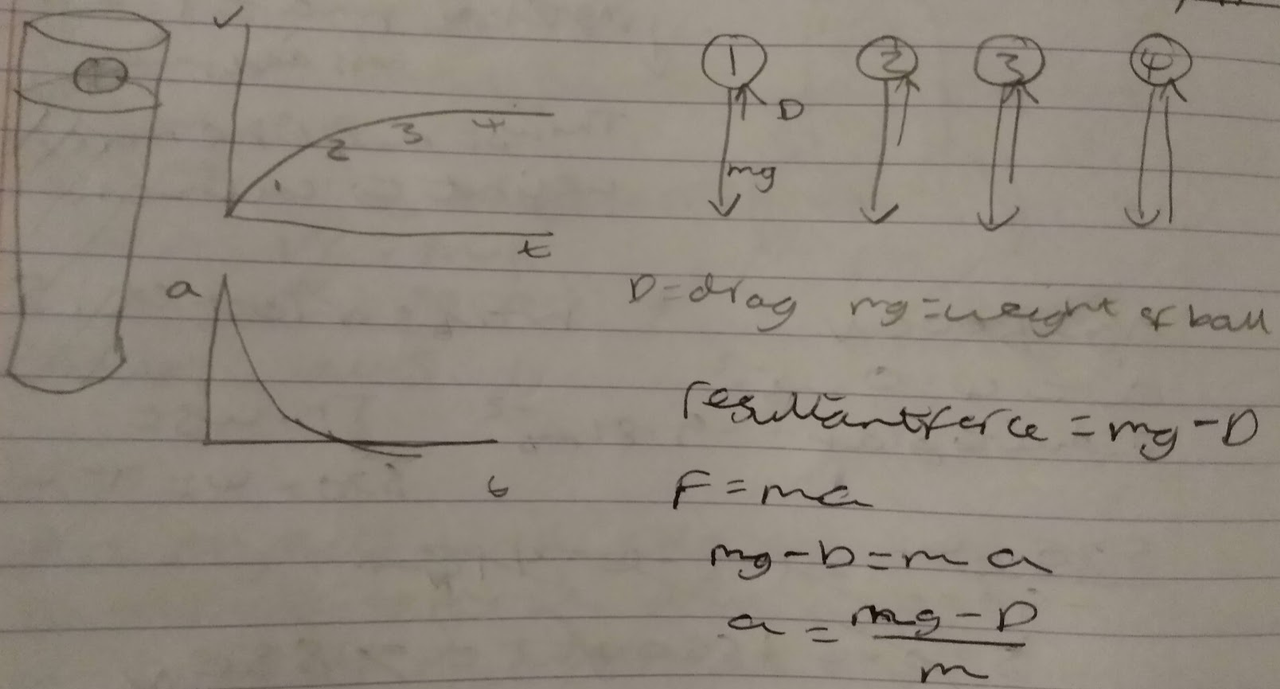 v
1 2 3 4
1 2 3 4
D
mg
t
a
D=drag mg=weight of ball
resultant force = mg-D
F=ma
mg-D=ma
t
a = mg-D
m